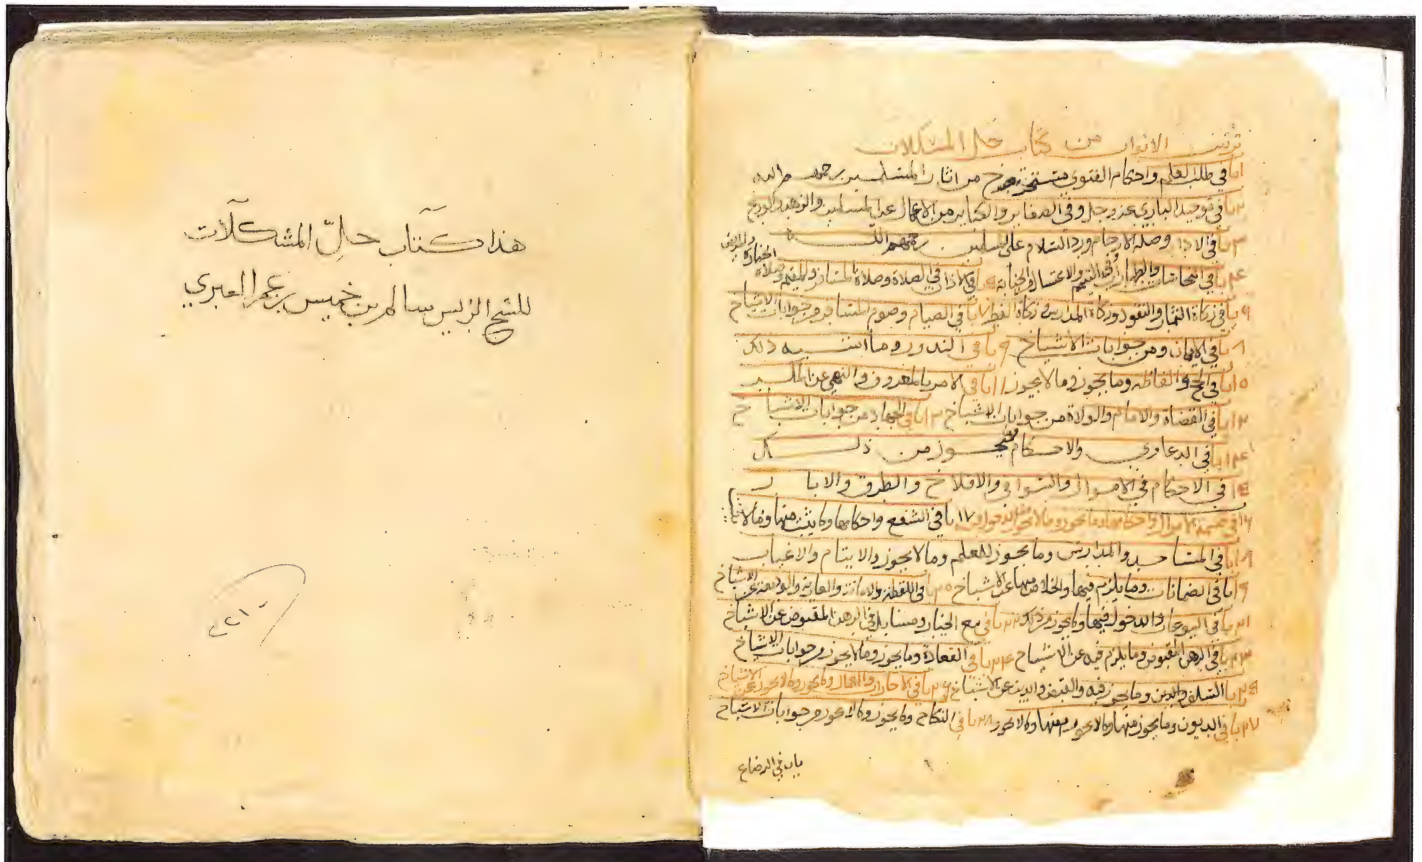 ترتيب الابواب من كتاب حل المشكلات
١ باب في طلب العلم واحكام الفتوى من اثار المسلمين رحمهم الله
٢ باب في توحيد الباري عز وجل وفي الصغاير والكباير من الاعمال عن المسلمين والزهد والورع
٣ باب في الاداب وصلة الارحام ورد السلام وعلى المسلمين رحمهم الله
٤ باب في النجاسات والطهارات وفي التيمم والاغتسال والجنابة ٥ باب في الاذان في الصلاة وصلاة المسافر والمقيم وصلاة الجنازة والمريض
٦ باب في زكاة الثمار والنقود وزكاة المدارس زكاة الفطر ٧ باب في الصيام وصوم المسافر من جوابات الاشياخ
٨ باب في الايمان ومن جوابات الاشياخ ٩ باب في النذور وما اشبه ذلك
١٠ باب في الحج والفاظه وما يجوز وما لا يجوز ١١ باب في الامر بالمعروف والنهي عن المنكر
١٢ باب في القضاة والامام والولاة من جوابات الاشياخ ١٣ باب في الجهاد من جوابات الاشياخ
١٤ باب في الدعاوي والاحكام فيما يجوز من ذلك
١٥ باب في الاحكام في الاموال والسواقي والافلاج والطرق والابار
١٦ في قسمة الاموال واحكامها وما يجوز وما لا يجوز ١٧ باب في الشفع واحكامها وما يثبت منها وما لا
١٨ باب في المساجد والمدارس وما يجوز للمعلم وما لا يجوز والايتام والاغياب
١٩ باب في الضمانات وما يلزم فيها والخلاص منها عن الاشياخ ٢٠ باب في اللقطة والامانة والعارية والوديعة عن الاشياخ
٢١ باب في البيوعات والدخول فيها وما يجوز من ذلك ٢٢ باب في بيع الخيار ومسايل في الرهن المقبوض عن الاشياخ
٢٣ باب في الرهن المقبوض وما يلزم فيه عن الاشياخ ٢٤ باب في القعادة وما يجوز وما لا يجوز من جوابات الاشياخ
٢٥ باب السلف والدين وما يجوز فيه والقبض والدين عن الاشياخ ٢٦ باب في الاجارات والعمال وما يجوز وما لا يجوز عن الاشياخ
٢٧ باب في الديون وما يجوز منها وما لا يجوز ٢٨ باب في النكاح وما يجوز وما لا يجوز من جوابات الاشياخ
باب في الرضاع
هذا كتاب حلّ المشكلات
للشيخ الرئيس سالم بن خميس بن عمر العبري